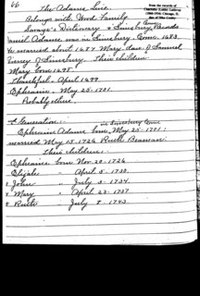 66
The Adams Line
Belongs with Wood Family
Savage's Dictionary & Simsbury Records
Daniel Adams was in Simsbury, Conn. 1683.
He married about 1687 Mary, dau. of Samuel
Their children
Mary born 1695.
Thankful - April 1699.
Ephraim - May 25, 1701.
Probably others.
Generation:
in Simsbury Conn
Ephraim Adams born, May 25, 1701;
married May 15, 1726 Ruth Beaman.
Their children:
Ephraim born Nov. 20, 1726
Elijah " April 5, 1732.
John " July 3, 1734.
Mary " April 23, 1737
Ruth " July 8, 1743